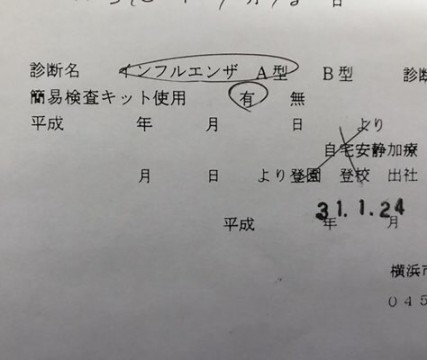 診断名 インフルエンザ A型 B型 診断
簡易検査キット使用 有 無
平成 年 月 日 より
自宅安静加療
月 日 より登園 登校 出社
平成 31.1.24 年 月
横浜市
045